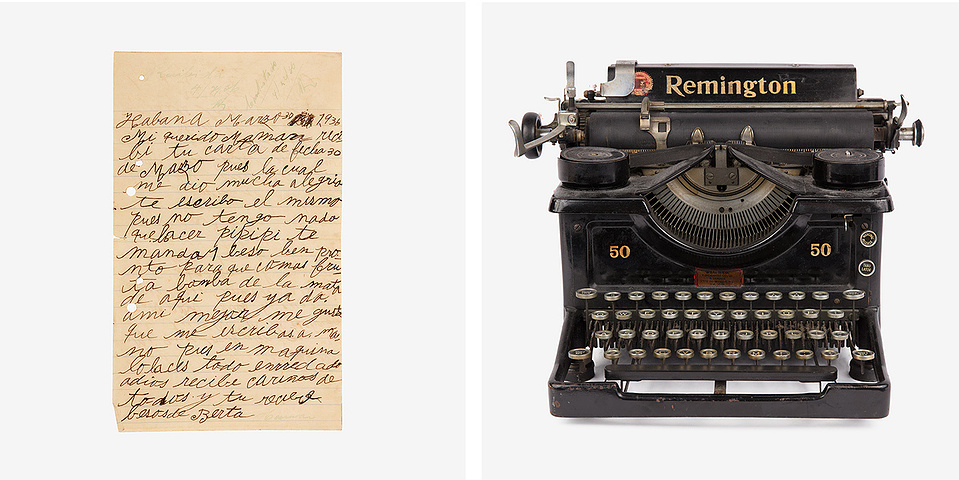 Habana Marzo 30 1930
Mi querido Maman reci
bi tu carta de fecha 30
de Mazo pues la cual
me dio mucha alegria
te escribo el mismo
pues no tengo nada
que lacer pipipi te
manda 1 beso ben pro
nto para que comas fru
ta bomba de la mata
de aqui pues ya da.
ami mejor me gusta
que me escribas a ma
no pues en maquina
lo laces todo enredado
adios recibe carinos de
todos y tu recive
besos de Berta
Remington
50 50